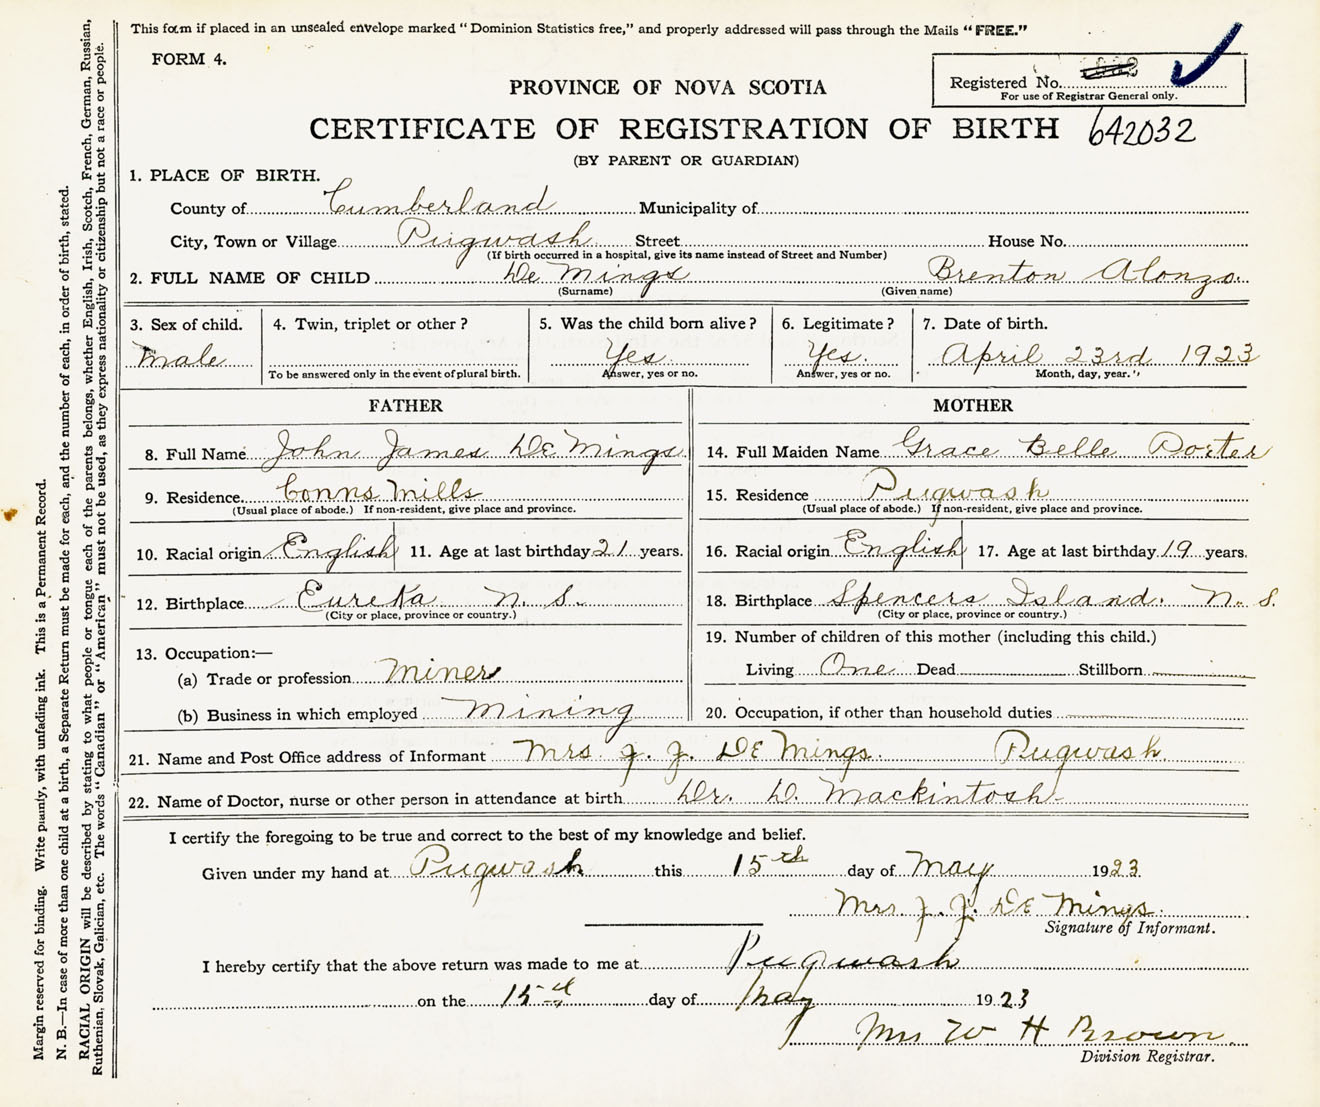 This form if placed in an unsealed envelope marked “Dominion Statistics free,” and properly addressed will pass through the Mails “FREE.”
FORM 4.
Registered No.
For use of Registrar General only.
PROVINCE OF NOVA SCOTIA
CERTIFICATE OF REGISTRATION OF BIRTH 642032
(BY PARENT OR GUARDIAN)
1. PLACE OF BIRTH.
County of Cumberland Municipality of
City, Town or Village Pugwash Street House No.
(If birth occurred in a hospital, give its name instead of Street and Number)
2. FULL NAME OF CHILD De Mings Brenton Alonzo.
(Surname) (Given name)
3. Sex of child. 4. Twin, triplet or other? 5. Was the child born alive? 6. Legitimate? 7. Date of birth.
male Yes. Yes. April 23rd 1923
To be answered only in the event of plural birth. Answer, yes or no. Answer, yes or no. Month, day, year.
FATHER MOTHER
8. Full Name John James De Mings 14. Full Maiden Name Grace Belle Porter
9. Residence Conns Mills 15. Residence Pugwash
(Usual place of abode.) If non-resident, give place and province. (Usual place of abode.) If non-resident, give place and province.
10. Racial origin English 11. Age at last birthday 21 years. 16. Racial origin English 17. Age at last birthday 19 years.
12. Birthplace Eureka N. S. 18. Birthplace Spencers Island. N. S.
(City or place, province or country.) (City or place, province or country.)
13. Occupation:— 19. Number of children of this mother (including this child.)
(a) Trade or profession Miner Living One Dead Stillborn
(b) Business in which employed Mining 20. Occupation, if other than household duties
21. Name and Post Office address of Informant Mrs J. J. De Mings. Pugwash.
22. Name of Doctor, nurse or other person in attendance at birth Dr. D. Mackintosh
I certify the foregoing to be true and correct to the best of my knowledge and belief.
Given under my hand at Pugwash this 15th day of May 1923.
Mrs J. J. De Mings.
Signature of Informant.
I hereby certify that the above return was made to me at Pugwash
on the 15 day of May 1923
Mrs W H Brown
Division Registrar.
Margin reserved for binding. Write plainly, with unfading ink. This is a Permanent Record.
N. B.—In case of more than one child at a birth, a Separate Return must be made for each, and the number of each, in order of birth, stated.
RACIAL ORIGIN will be described by stating to what people or tongue each of the parents belongs, whether English, Irish, Scotch, French, German, Russian,
Ruthenian, Slovak, Galician, etc. The words “Canadian” or “American” must not be used, as they express nationality or citizenship but not a race or people.